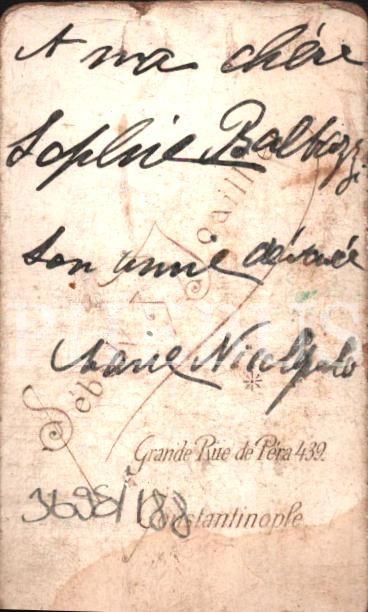 A ma chère
Sophie Baltazzi
son amie dévouée
Marie
Sébah & Joaillier
Grande Rue de Péra 439.
Constantinople